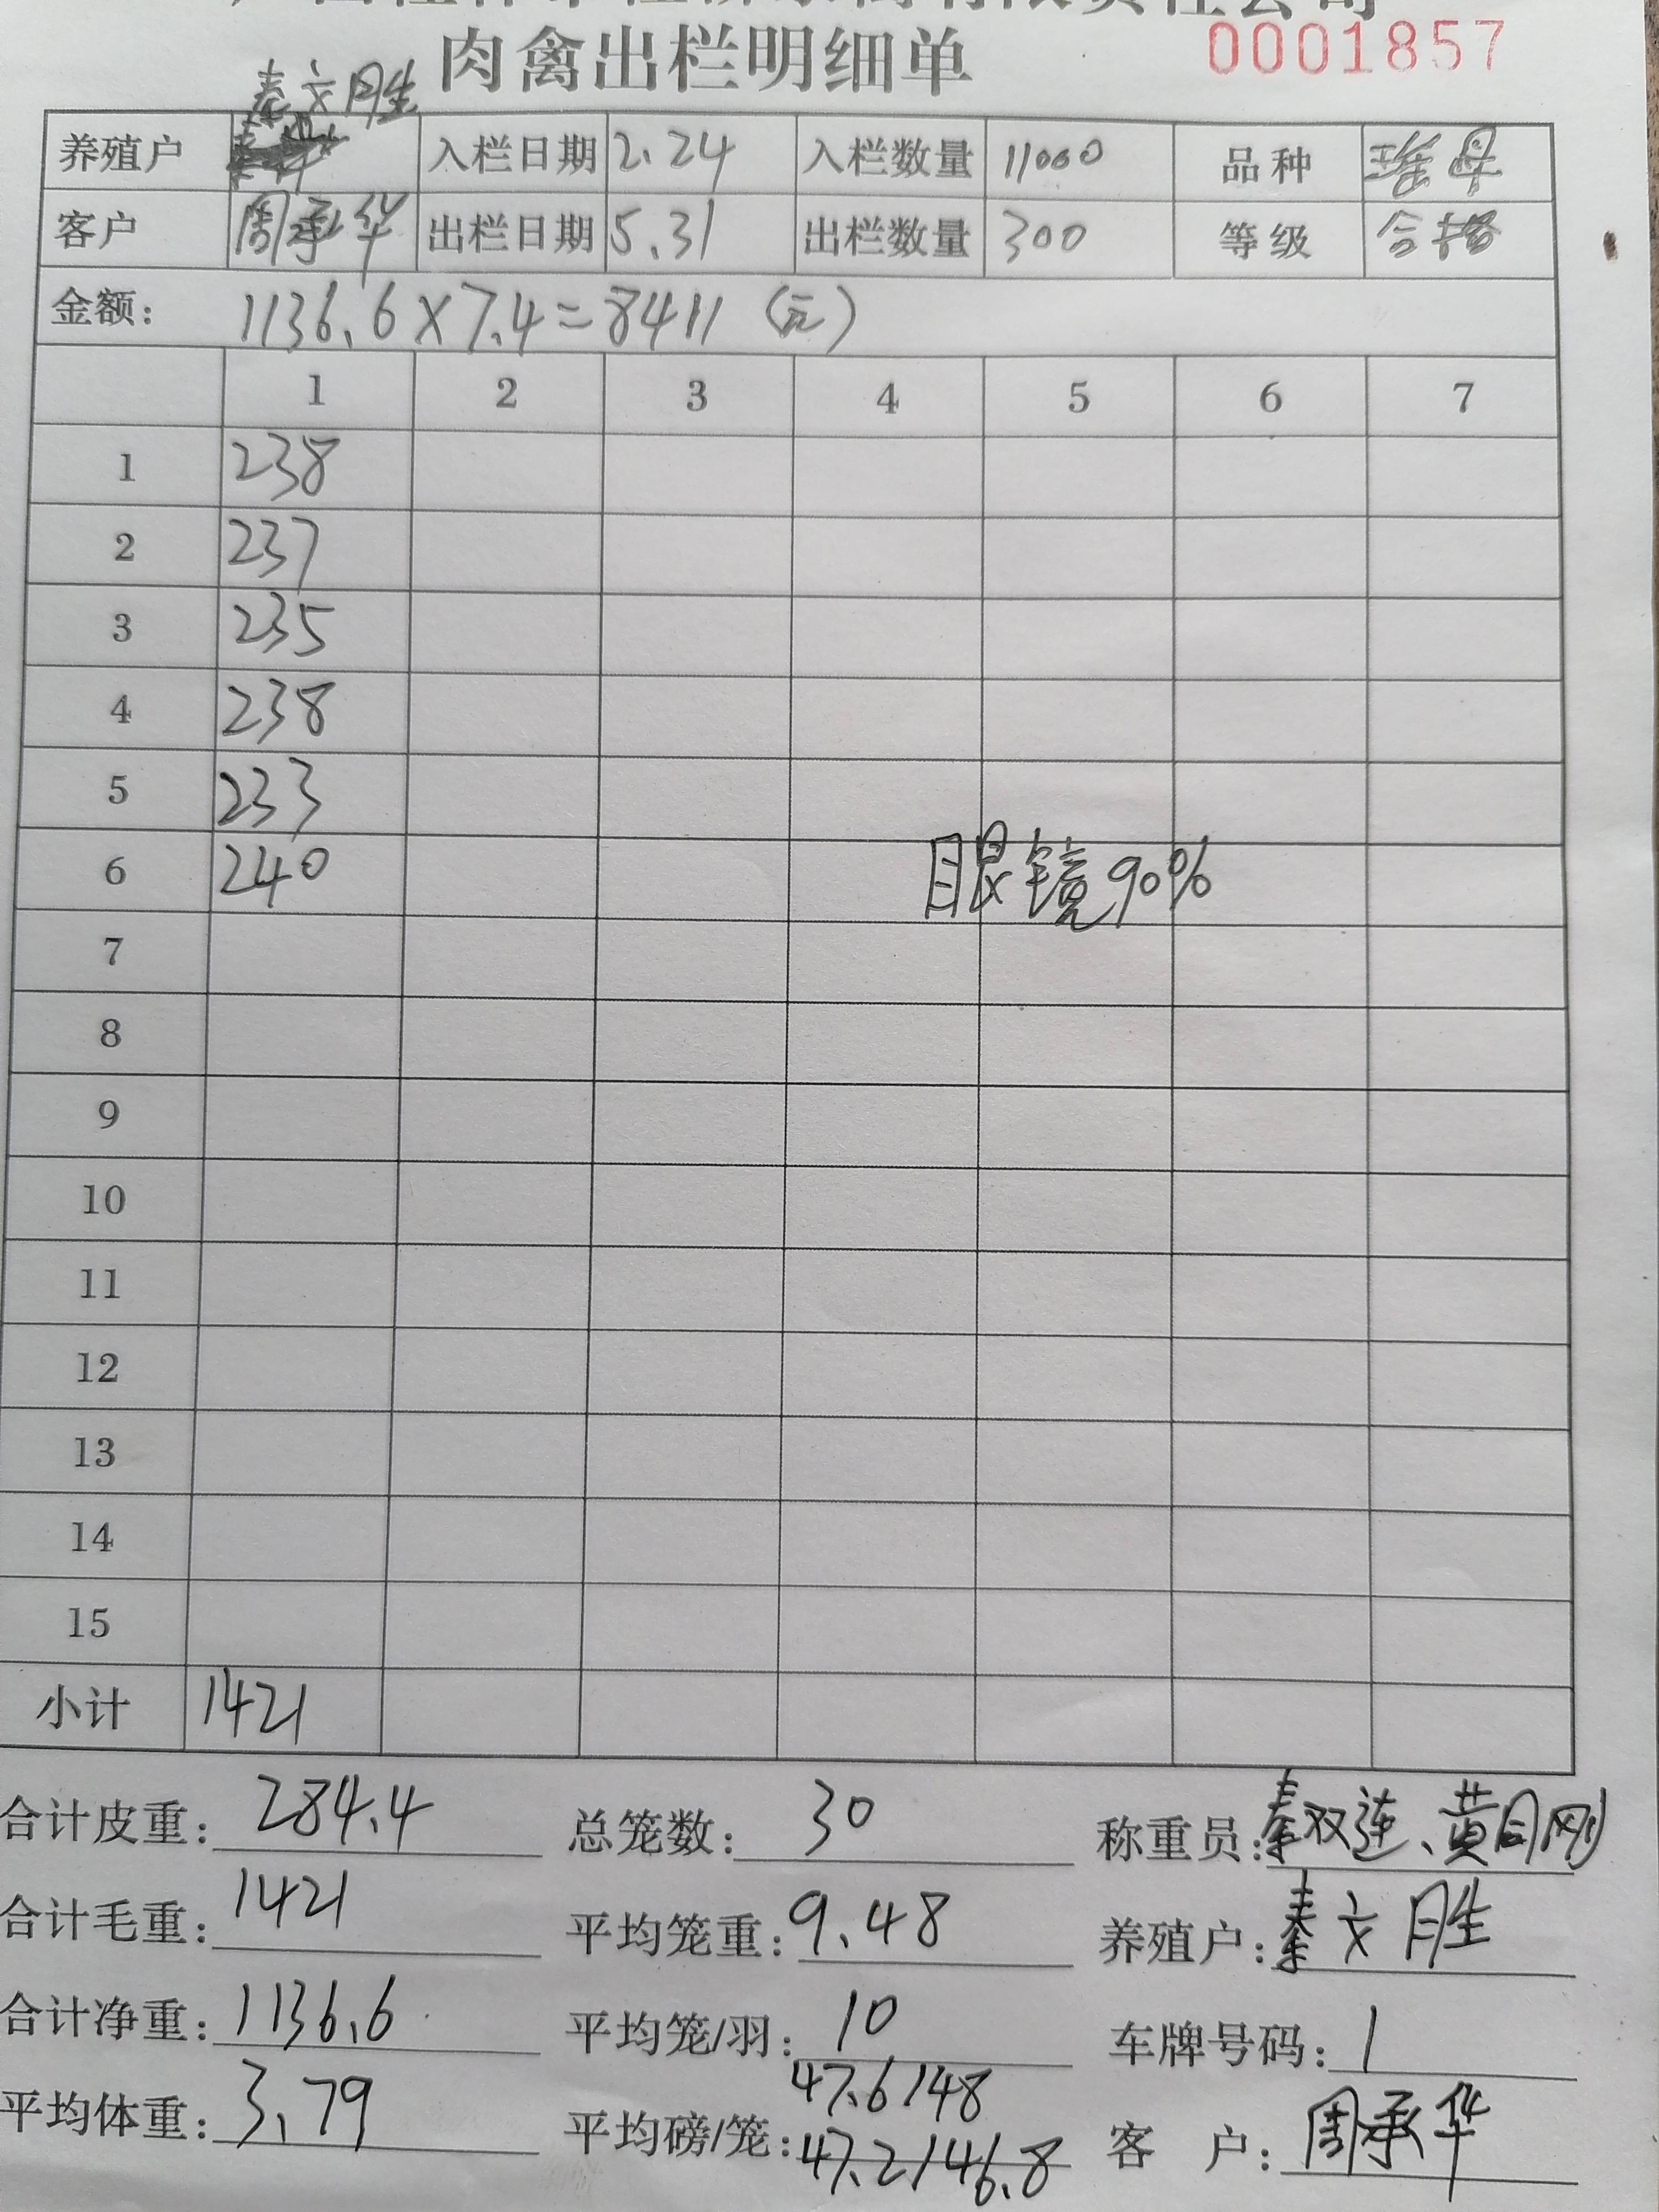 肉禽出栏明细单 0001857
秦文胜
养殖户 入栏日期 2.24 入栏数量 11000 品种 瑶母
客户 周承华 出栏日期 5.31 出栏数量 300 等级 合格
金额： 1136.6×7.4=8411（元）
1 2 3 4 5 6 7
1 238
2 237
3 235
4 238
5 233
6 240 眼镜90%
7
8
9
10
11
12
13
14
15
小计 1421
合计皮重： 284.4 总笼数： 30 称重员： 秦双连、黄目刚
合计毛重： 1421 平均笼重： 9.48 养殖户： 秦文胜
合计净重： 1136.6 平均笼/羽： 10 车牌号码： 1
47.6/48
平均体重： 3.79 平均磅/笼： 47.2/46.8 客 户： 周承华